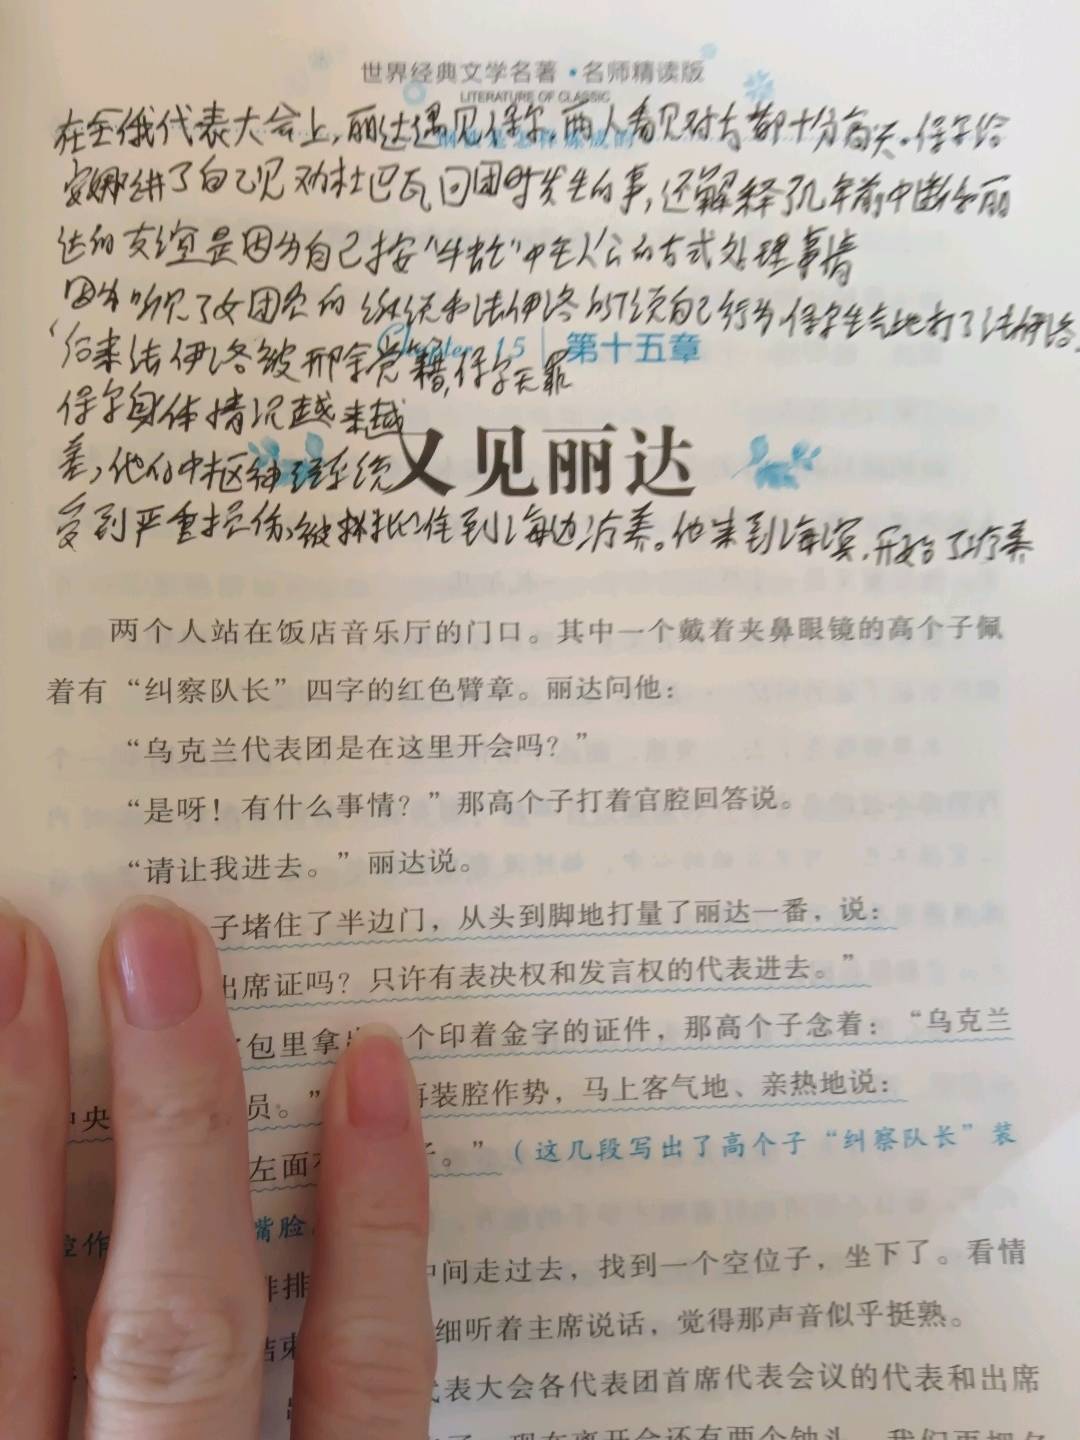 世界经典文学名著·名师精读版
LITERATURE OF CLASSIC
在全俄代表大会上，丽达遇见保尔，两人看见对方都十分高兴。保尔给
安娜讲了自己见劝杜巴瓦回团时发生的事，还解释了几年前中断和丽
达的友谊是因为自己按“牛虻”中主人公的方式处理事情
因为听见了女团员的 和法伊洛的 自己行为 保尔生气地打了法伊洛。
后来法伊洛被开除党籍，保尔无罪
Chapter 15 第十五章
保尔身体情况越来越
差，他的中枢神经系统
又见丽达
受到严重损伤，被批准到海边疗养。他来到海滨，开始了疗养
两个人站在饭店音乐厅的门口。其中一个戴着夹鼻眼镜的高个子佩
着有“纠察队长”四字的红色臂章。丽达问他：
“乌克兰代表团是在这里开会吗？”
“是呀！有什么事情？”那高个子打着官腔回答说。
“请让我进去。”丽达说。
子堵住了半边门，从头到脚地打量了丽达一番，说：
出席证吗？只许有表决权和发言权的代表进去。”
包里拿出一个印着金字的证件，那高个子念着：“乌克兰
中央 员。” 再装腔作势，马上客气地、亲热地说：
左面有 子。”（这几段写出了高个子“纠察队长”装
腔作 嘴脸。
排排 中间走过去，找到一个空位子，坐下了。看情
结束 细听着主席说话，觉得那声音似乎挺熟。
代表大会各代表团首席代表会议的代表和出席
现在离开会还有两个钟头